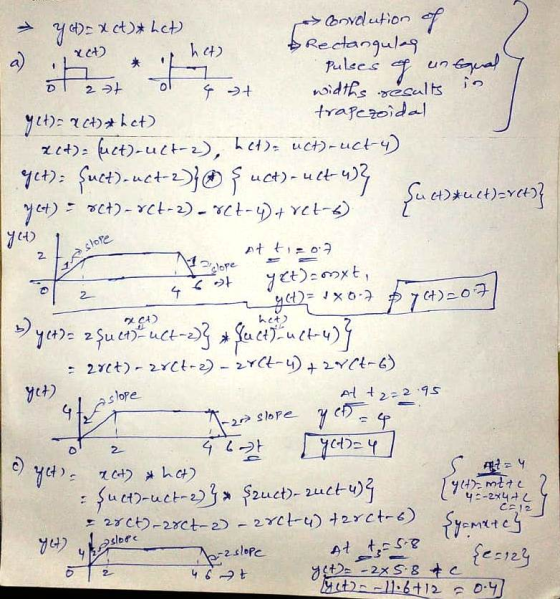 ⇒ y(t) = x(t) * h(t)
→ Convolution of
→ Rectangular
pulses of unequal
widths results in
trapezoidal
a) x(t) * h(t)
1 1
0 2 →t 0 4 →t
y(t) = x(t) * h(t)
x(t) = (u(t)-u(t-2), h(t) = u(t)-u(t-4)
y(t) = {u(t)-u(t-2)} * {u(t)-u(t-4)}
y(t) = r(t)-r(t-2)-r(t-4)+r(t-6)
{u(t)*u(t)=r(t)}
y(t)
2 1→slope -1→slope
0 2 4 6 →t
At t₁ = 0.7
y(t) = m×t₁
y(t) = 1×0.7 ⇒ y(t) = 0.7
x(t) h(t)
b) y(t) = 2{u(t)-u(t-2)} * {u(t)-u(t-4)}
= 2r(t)-2r(t-2)-2r(t-4)+2r(t-6)
y(t)
4 2→slope -2→slope
0 2 4 6 →t
At t₂ = 2.95
y(t) = 4
y(t) = 4
c) y(t) = x(t) * h(t)
= {u(t)-u(t-2)} * {2u(t)-2u(t-4)}
= 2r(t)-2r(t-2)-2r(t-4)+2r(t-6)
t = 4
y(t) = mt+c
4 = -2×4+c
c = 12
{y=mx+c}
{c=12}
y(t)
4 2→slope -2slope
0 2 4 6 →t
At t₃ = 5.8
y(t) = -2×5.8 + c
y(t) = -11.6+12 = 0.4